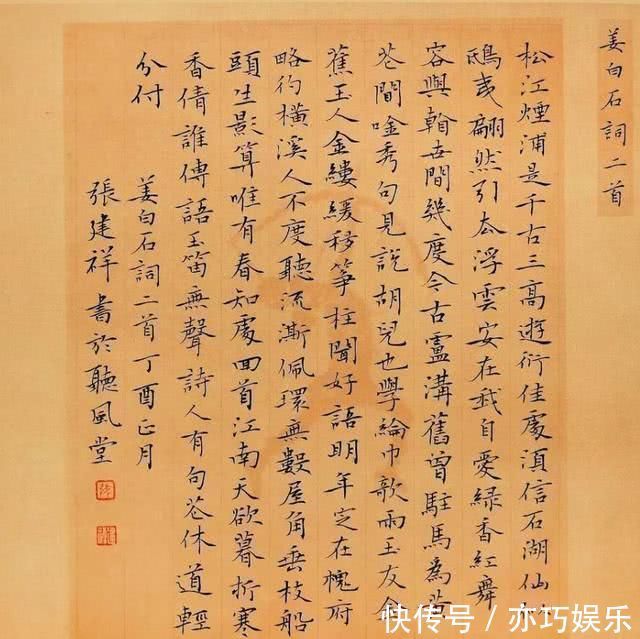 姜白石詞二首
松江煙浦是千古三高遊衍佳處須信石湖仙
鴟夷翩然引去浮雲安在我自愛綠香紅舞
容與看世間幾度今古盧溝舊曾駐馬為黃
花間唫秀句見說胡兒也學綸巾欹雨玉友金
蕉玉人金縷緩移箏柱聞好語明年定在槐府
略彴橫溪人不度聽流澌佩環無數屋角垂枝船
頭生影算唯有春知處回首江南天欲暮折寒
香倩誰傳語玉笛無聲詩人有句花休道輕
分付
姜白石詞二首丁酉正月
張建祥書於聽風堂
快传号 / 亦巧娱乐